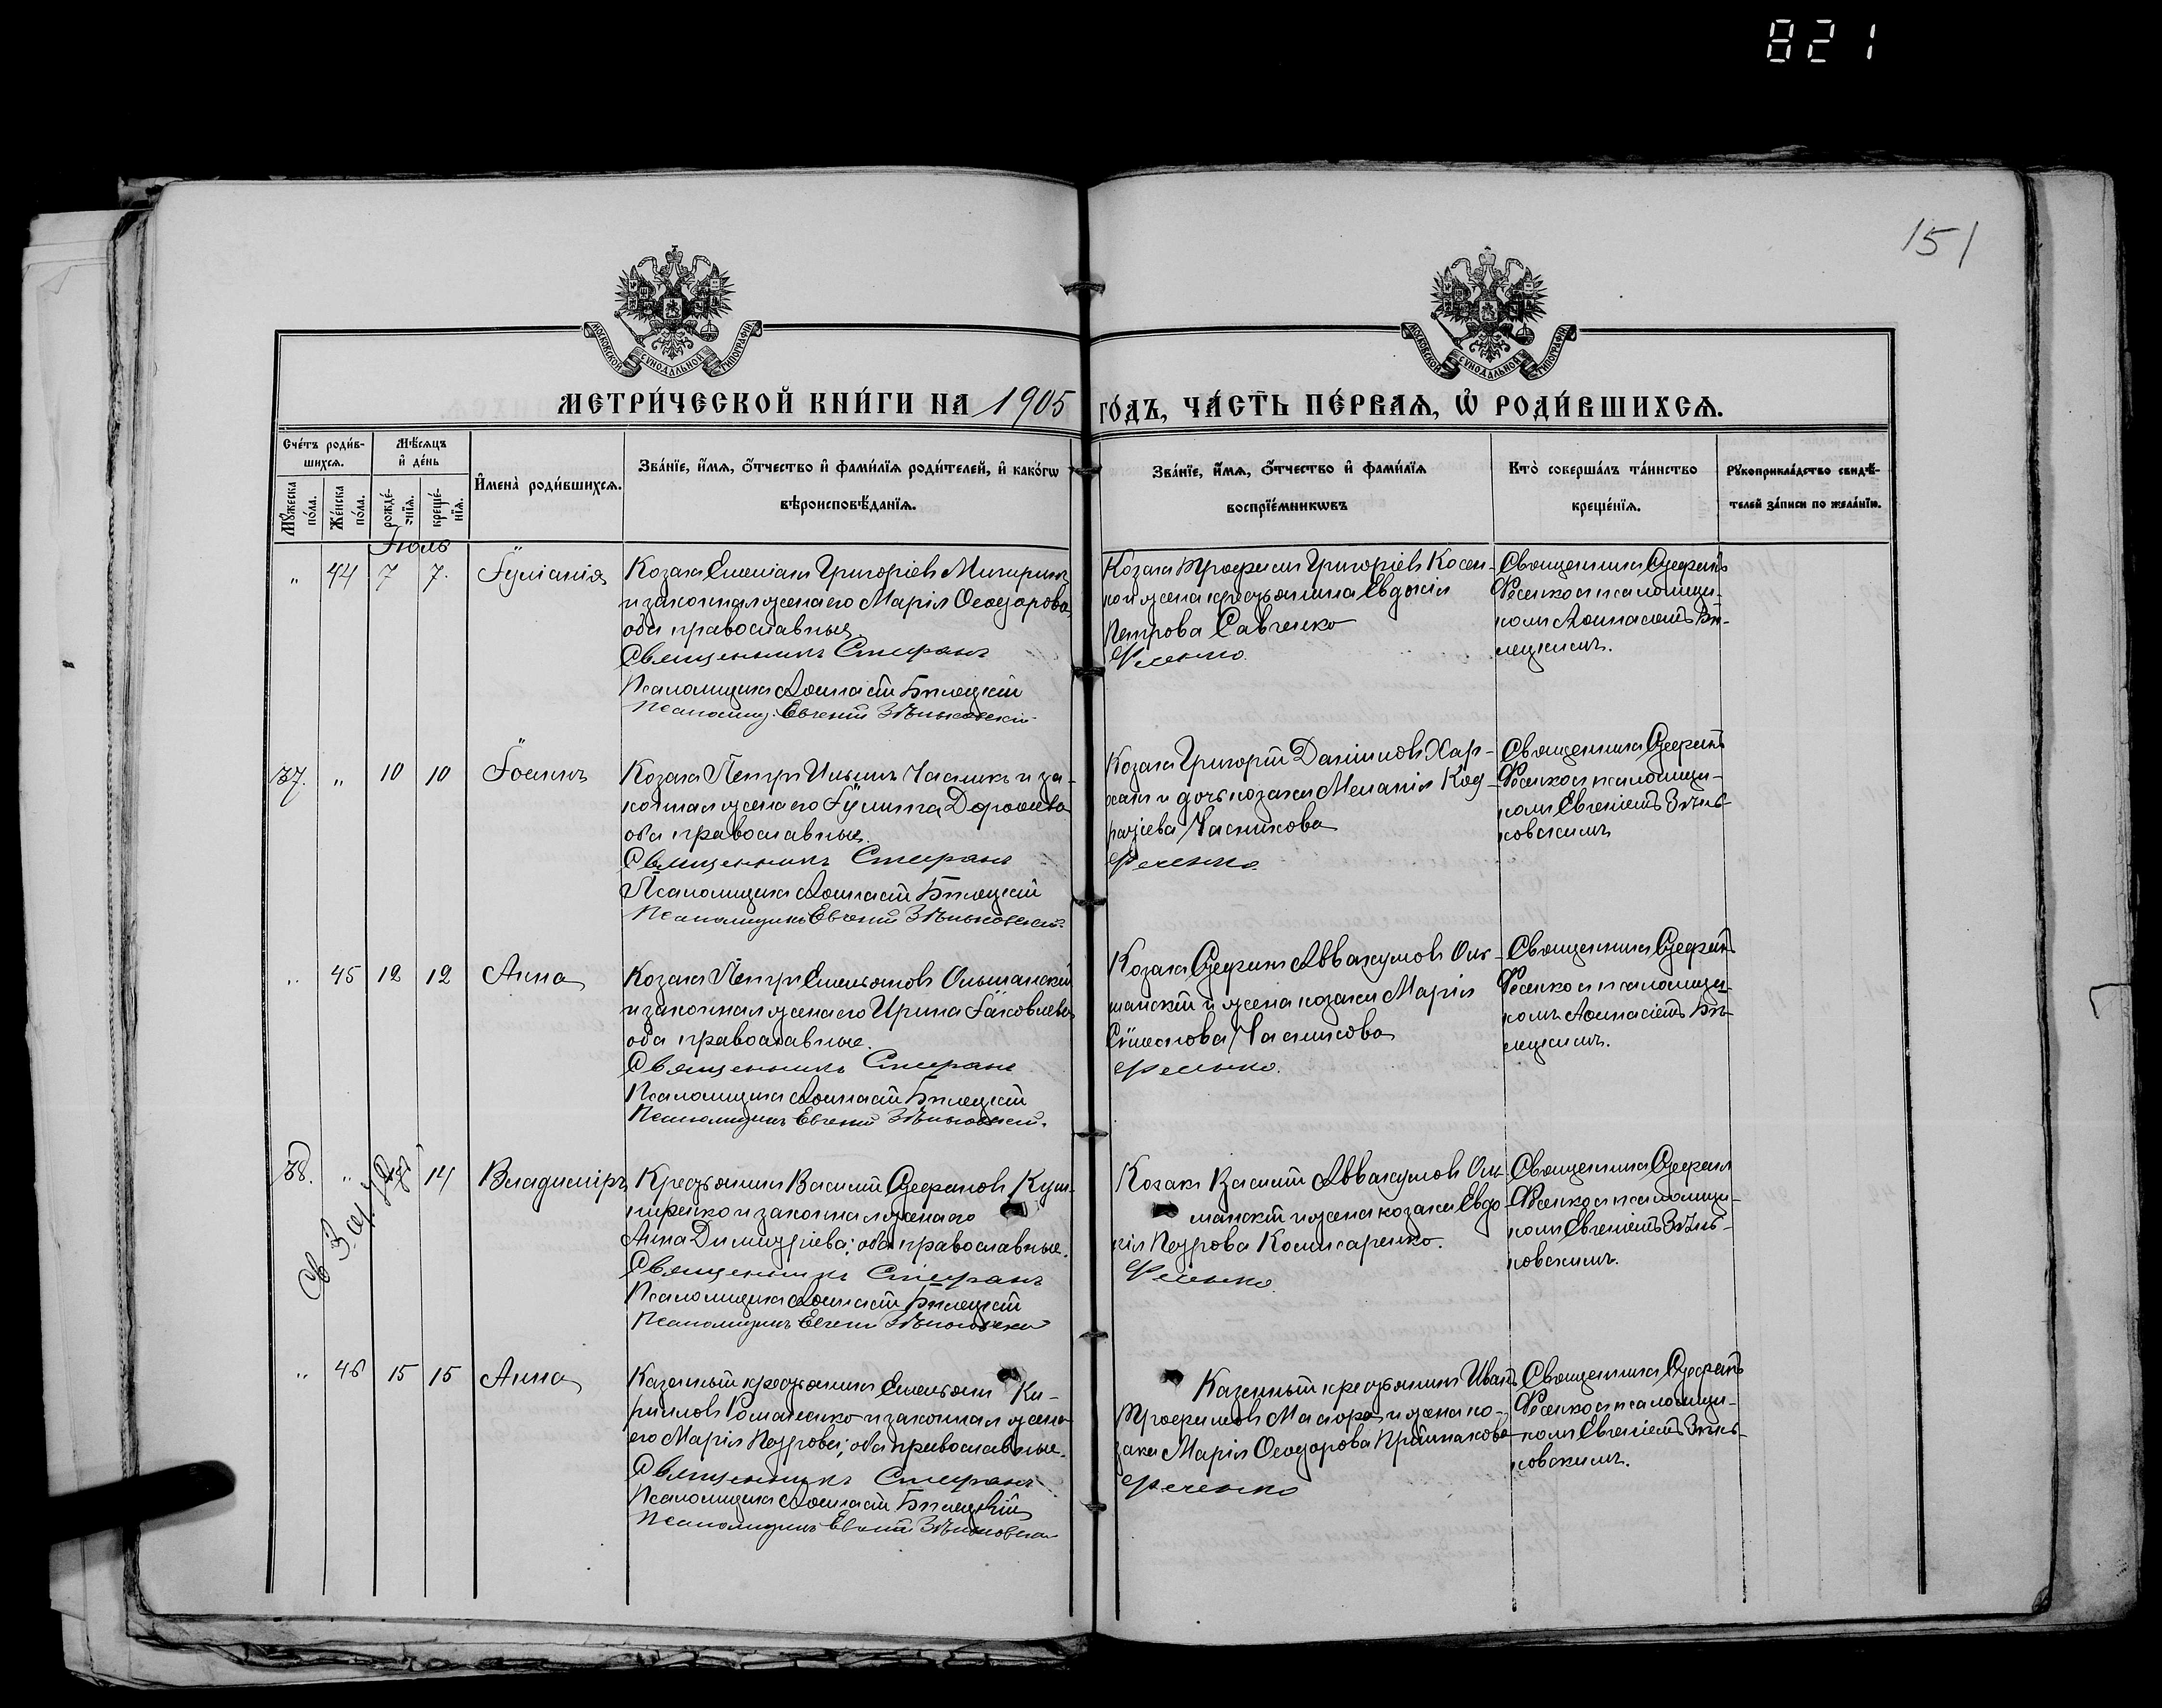 821
151
МОСКОВСКОЙ СѴНОДАЛЬНОЙ ТИПОГРАФІИ
МОСКОВСКОЙ СѴНОДАЛЬНОЙ ТИПОГРАФІИ
МЕТРИ́ЧЕСКОЙ КНИ́ГИ НА 1905 ГО́ДЪ, ЧА́СТЬ ПЕ́РВАѦ, Ѡ҆ РОДИ́ВШИХСѦ.
Сче́тъ роди́в-
шихсѧ.
Мѣ́сѧцъ
и҆ де́нь
Мꙋ́жеска
по́ла.
Же́нска
по́ла.
рожде́-
нїѧ.
креще́-
нїѧ.
И҆мена̀ роди́вшихсѧ.
Зва́нїе, и҆́мѧ, ѻ҆́тчество и҆ фами́лїѧ роди́телей, и҆ како́гѡ
вѣроисповѣ́данїѧ.
Зва́нїе, и҆́мѧ, ѻ҆́тчество и҆ фами́лїѧ
воспрїе́мникѡвъ
Кто̀ соверша́лъ та́инство
креще́нїѧ.
Рꙋкоприкла́дство свидѣ́-
телей за́писи по жела́нїю.
Іюль
" 44 7 7. Іуліанія
Козакъ Емеліанъ Григоріевъ
и законная жена его Марія Ѳеодорова,
оба православные
Священникъ Стефанъ
Псаломщикъ Аѳанасій Билецкій
Псаломщ. Евгеній Зѣньковскій
Козакъ Трофимъ Григоріевъ Косен-
ко и жена крестьянина Евдокія
Петрова Савченко
Фесенко
Священникъ Стефанъ
Фесенко и псаломщи-
комъ Аѳанасіемъ Би-
лецкимъ.
37. " 10 10 Іоаннъ
Козакъ Петръ Ильинъ Часникъ и за-
конная жена его Іулитта Дороѳеева
оба православные.
Священникъ Стефанъ
Псаломщикъ Аѳанасій Билецкій
Псаломщикъ Евгеній Зѣньковскій
Козакъ Григорій Даніиловъ Хар-
и дочь козака Меланія Код-
ратіева Часникова
Фесенко
Священникъ Стефанъ
Фесенко и псаломщи-
комъ Евгеніемъ Зѣнь-
ковскимъ
" 45 12 12 Анна
Козакъ Петръ Емельяновъ Ольшанскій
и законная жена его Ирина Іаковлева
оба православные.
Священникъ Стефанъ
Псаломщикъ Аѳанасій Билецкій
Псаломщикъ Евгеній Зѣньковскій.
Козакъ Стефанъ Аввакумовъ Оль-
шанскій и жена козака Марія
Сѵмеонова Часникова
Фесенко.
Священникъ Стефанъ
Фесенко и псаломщи-
комъ Аѳанасіемъ Би-
лецкимъ.
38. " 14 Владиміръ
Крестьянинъ Василій Стефановъ Куш-
ниренко и законная жена его
Анна Димитріева; оба православные.
Священникъ Стефанъ
Псаломщикъ Аѳанасій Билецкій
Псаломщикъ Евгеній Зѣньковскій
Козакъ Василій Аввакумовъ Оль-
шанскій и жена козака Евдо-
кія Петрова Комисаренко.
Фесенко
Священникъ Стефанъ
Фесенко и псаломщи-
комъ Евгеніемъ Зѣнь-
ковскимъ.
" 46 15 15 Анна
Казенный крестьянинъ Емельянъ Ки-
рилловъ Романенко и законная жена
его Марія Петрова; оба православные.
Священникъ Стефанъ
Псаломщикъ Аѳанасій Билецкій
Псаломщикъ Евгеній Зѣньковскій
Казенный крестьянинъ Иванъ
Трофимовъ и жена ко-
зака Марія Ѳеодорова Приймакова
Фесенко
Священникъ Стефанъ
Фесенко и псаломщи-
комъ Евгеніемъ Зѣнь-
ковскимъ.